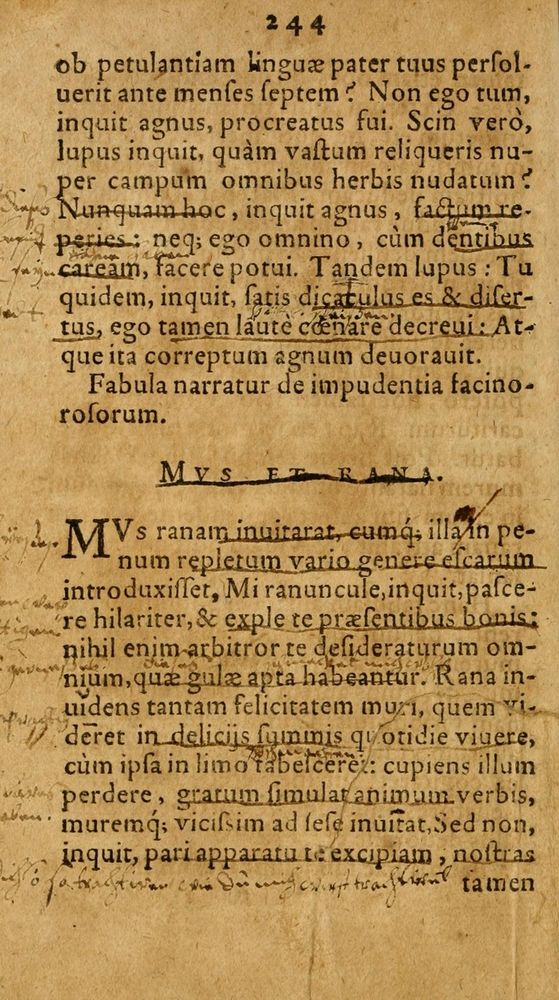 244
ob petulantiam linguæ pater tuus persol-
uerit ante menses septem? Non ego tum,
inquit agnus, procreatus fui. Scin verò,
lupus inquit, quàm vastum reliqueris nu-
per campum omnibus herbis nudatum?
Nunquam hoc, inquit agnus, factum re-
peries: neq; ego omnino, cùm dentibus
caream, facere potui. Tandem lupus: Tu
quidem, inquit, satis dicaculus es & diser-
tus, ego tamen lautè cœnare decreui: At-
que ita correptum agnum deuorauit.
Fabula narratur de impudentia facino-
rosorum.
MVS ET RANA.
MVs ranam inuitarat, cumq́; illa in pe-
num repletum vario genere escarum
introduxisset, Mi ranuncule, inquit, pasce-
re hilariter, & exple te præsentibus bonis:
nihil enim arbitror te desideraturum om-
nium, quæ gulæ apta habeantur. Rana in-
uidens tantam felicitatem muri, quem vi-
deret in delicijs summis quotidie viuere,
cùm ipsa in limo tabesceret: cupiens illum
perdere, gratum simulat animum verbis,
muremq́; vicissim ad sese inuitat, Sed non,
inquit, pari apparatu te excipiam, nostras
tamen